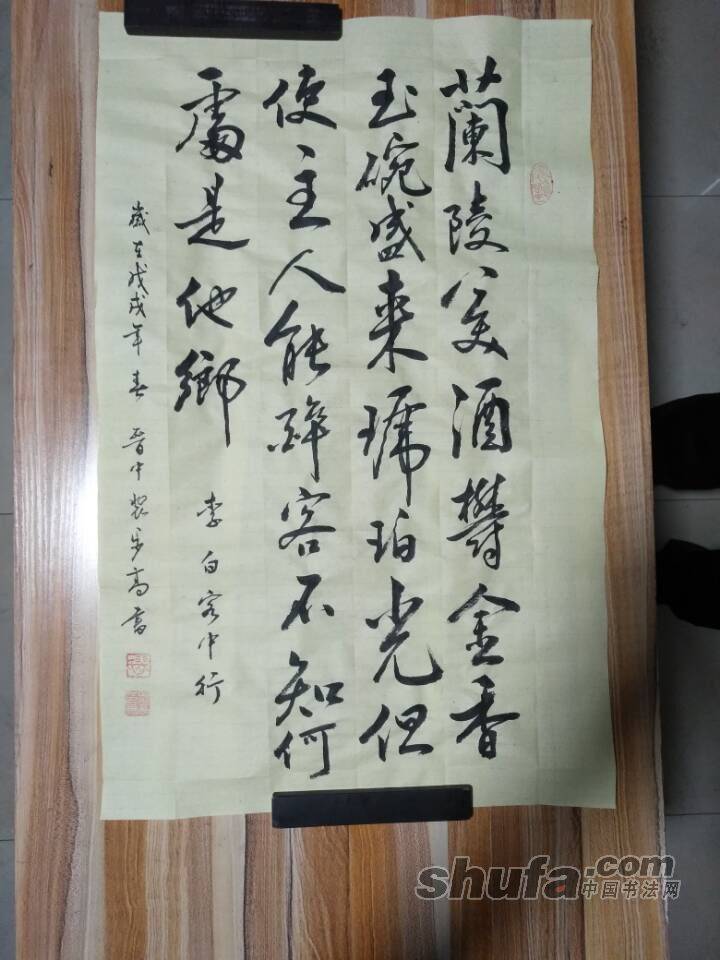 蘭陵美酒鬱金香
玉碗盛来琥珀光但
使主人能醉客不知何
處是他鄉
李白客中行
歲在戊戌年春 晉中裴步高書
shufa.com
中国书法网